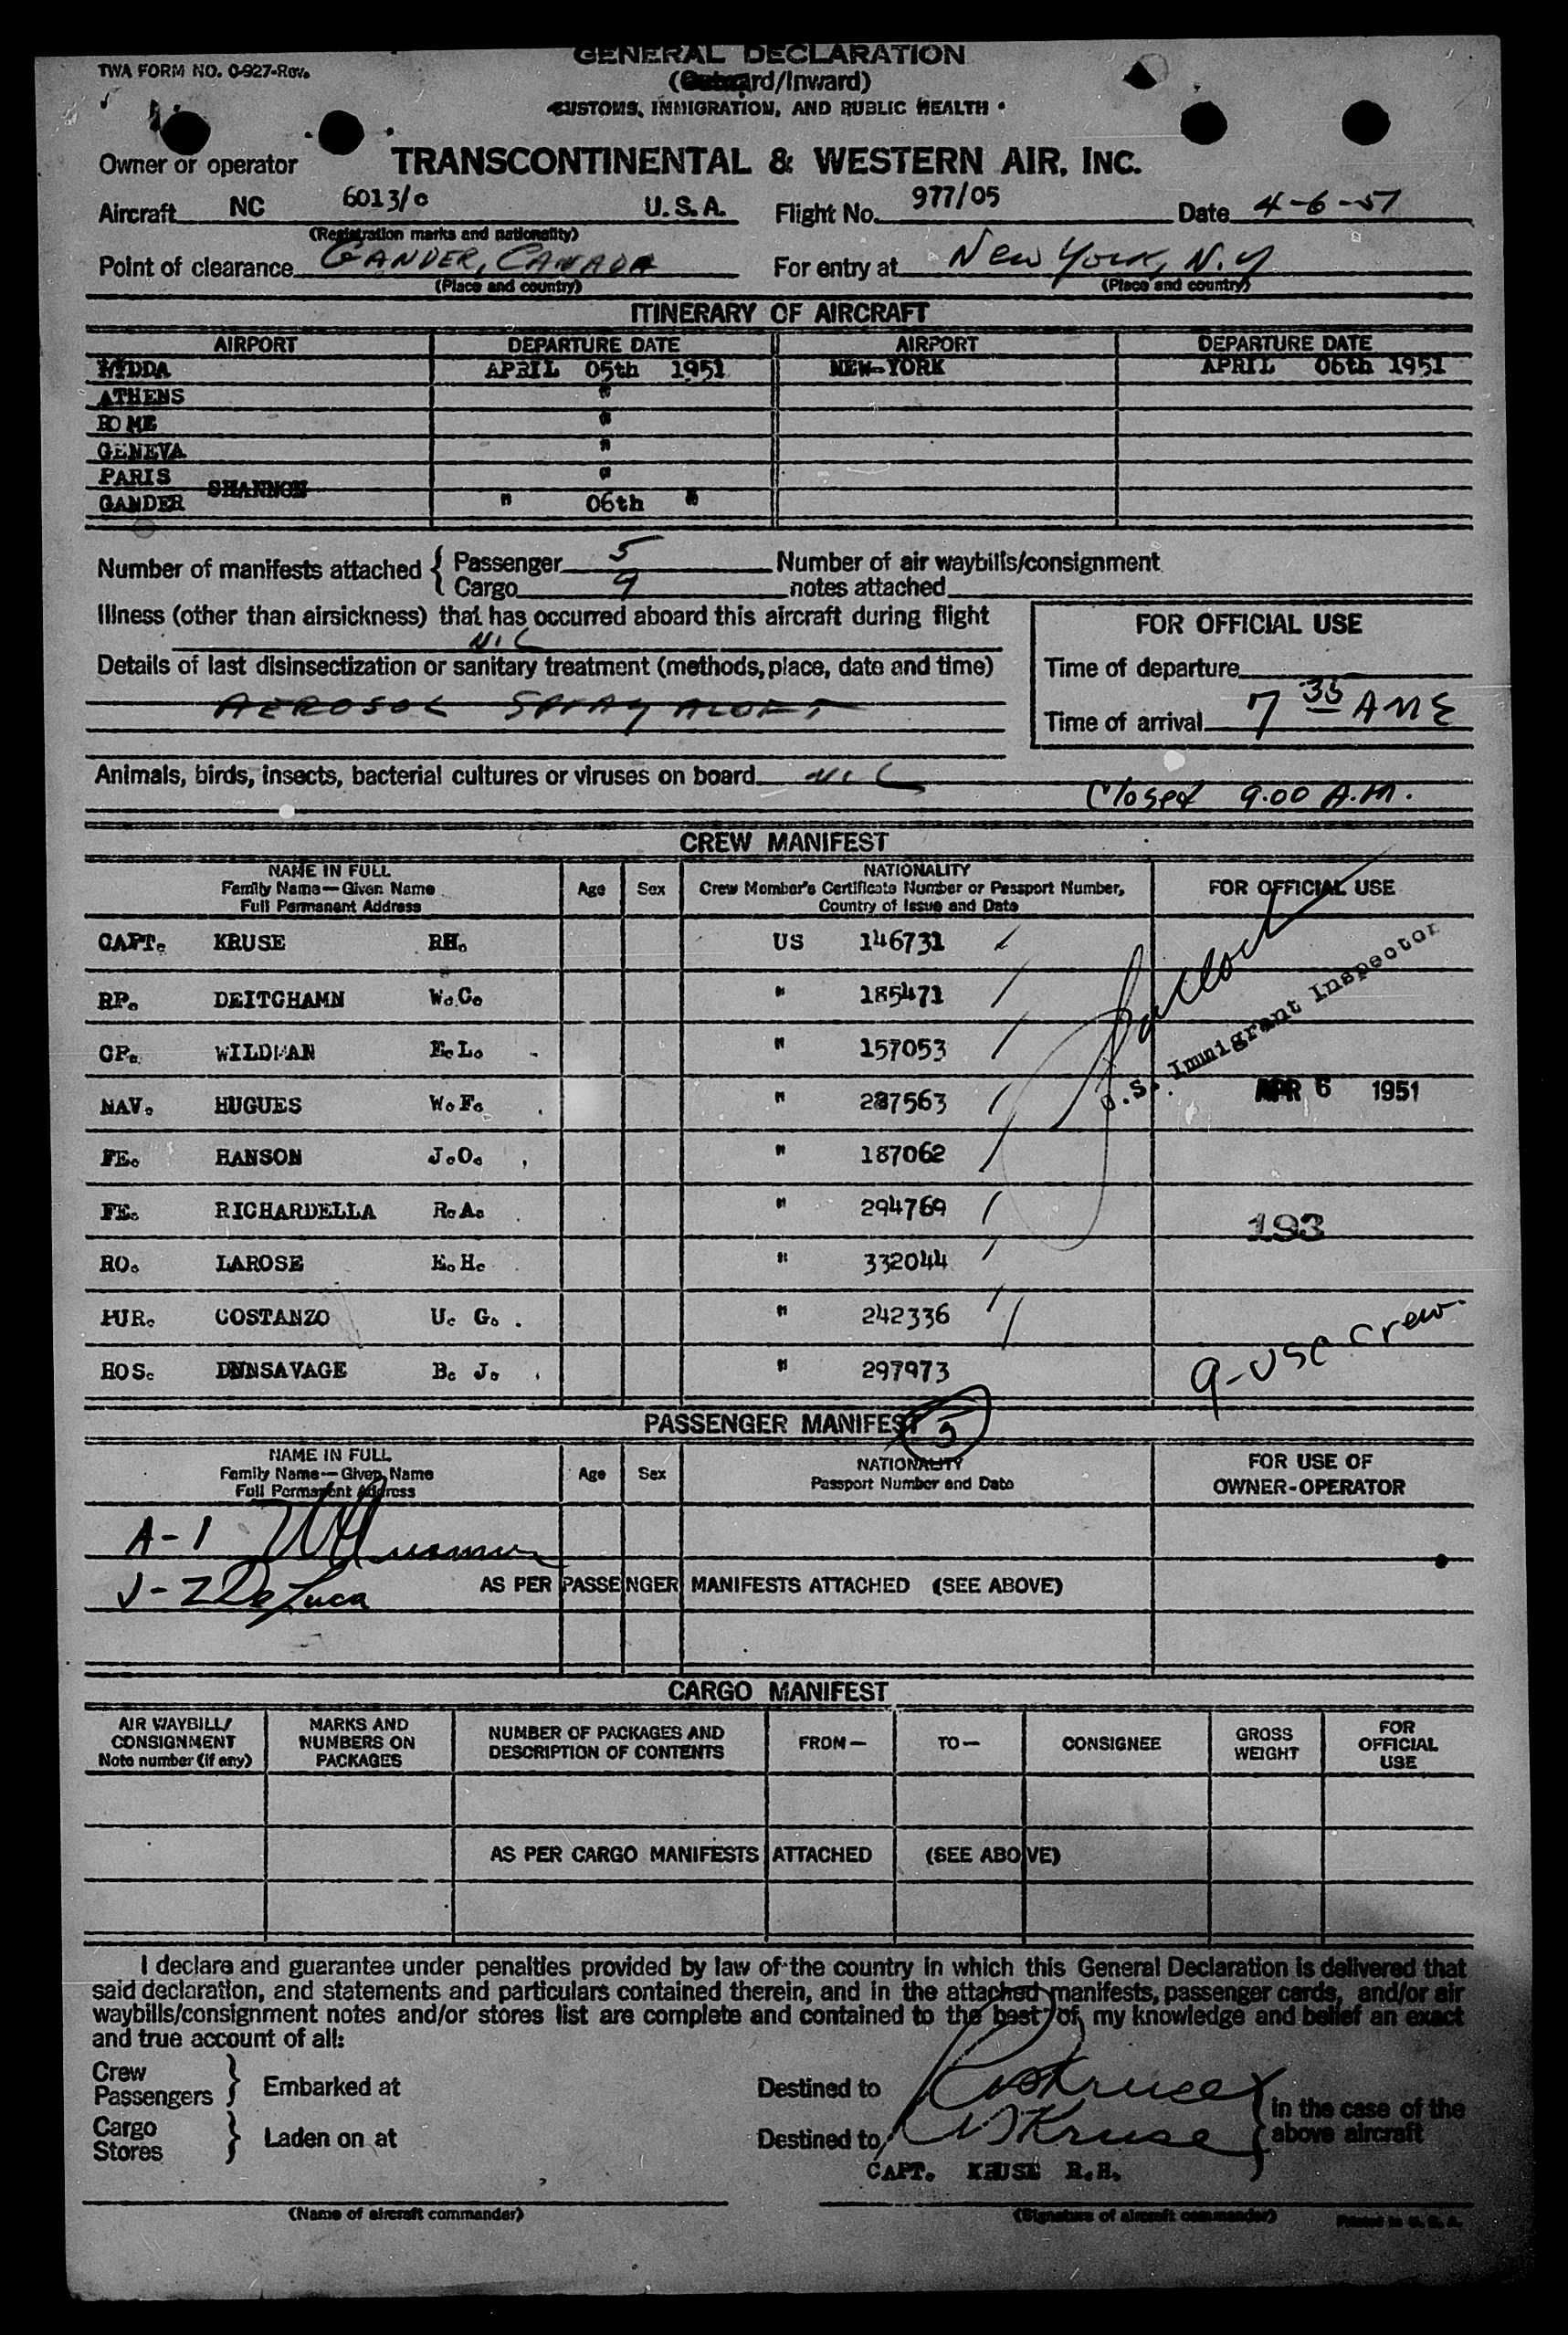 GENERAL DECLARATION
TWA FORM NO. 0-927-Rev.
(Outward/Inward)
CUSTOMS, IMMIGRATION, AND PUBLIC HEALTH
Owner or operator TRANSCONTINENTAL & WESTERN AIR, INC.
Aircraft NC 6013/c U.S.A. Flight No. 977/05 Date 4-6-51
(Registration marks and nationality)
Point of clearance GANDER, CANADA For entry at New York, N.Y
(Place and country) (Place and country)
ITINERARY OF AIRCRAFT
AIRPORT DEPARTURE DATE AIRPORT DEPARTURE DATE
LYDDA APRIL 05th 1951 NEW-YORK APRIL 06th 1951
ATHENS "
ROME "
GENEVA "
PARIS "
SHANNON
GANDER " 06th "
Number of manifests attached { Passenger 5 Number of air waybills/consignment
Cargo 9 notes attached
Illness (other than airsickness) that has occurred aboard this aircraft during flight
NIL
FOR OFFICIAL USE
Details of last disinsectization or sanitary treatment (methods, place, date and time)
Time of departure
AEROSOL SPRAY ALOFT
Time of arrival 7 35 AME
Animals, birds, insects, bacterial cultures or viruses on board NIL
Closed 9.00 A.M.
CREW MANIFEST
NAME IN FULL NATIONALITY
Family Name—Given Name Age Sex Crew Member's Certificate Number or Passport Number, FOR OFFICIAL USE
Full Permanent Address Country of Issue and Date
CAPT. KRUSE RH. US 146731
RP. DEITCHAMN W.C. " 185471
CP. WILDMAN E.L. " 157053
U.S. Immigrant Inspector
NAV. HUGUES W.F. " 287563 APR 6 1951
FE. HANSON J.O. " 187062
FE. RICHARDELLA R.A. " 294769
193
RO. LAROSE E.H. " 332044
PUR. COSTANZO U. G. " 242336
HOS. DUNSAVAGE B. J. " 297973
9-USC Crew
PASSENGER MANIFEST 5
NAME IN FULL NATIONALITY FOR USE OF
Family Name—Given Name Age Sex Passport Number and Date OWNER-OPERATOR
Full Permanent Address
A-1
J-2 De Luca AS PER PASSENGER MANIFESTS ATTACHED (SEE ABOVE)
CARGO MANIFEST
AIR WAYBILL/ MARKS AND NUMBER OF PACKAGES AND FROM— TO— CONSIGNEE GROSS FOR
CONSIGNMENT NUMBERS ON DESCRIPTION OF CONTENTS WEIGHT OFFICIAL
Note number (if any) PACKAGES USE
AS PER CARGO MANIFESTS ATTACHED (SEE ABOVE)
I declare and guarantee under penalties provided by law of the country in which this General Declaration is delivered that
said declaration, and statements and particulars contained therein, and in the attached manifests, passenger cards, and/or air
waybills/consignment notes and/or stores list are complete and contained to the best of my knowledge and belief an exact
and true account of all:
Crew
Passengers } Embarked at Destined to RH Kruse
in the case of the
Cargo
Stores } Laden on at Destined to RH Kruse above aircraft
CAPT. KRUSE R.H.
(Name of aircraft commander) (Signature of aircraft commander) Printed in U.S.A.